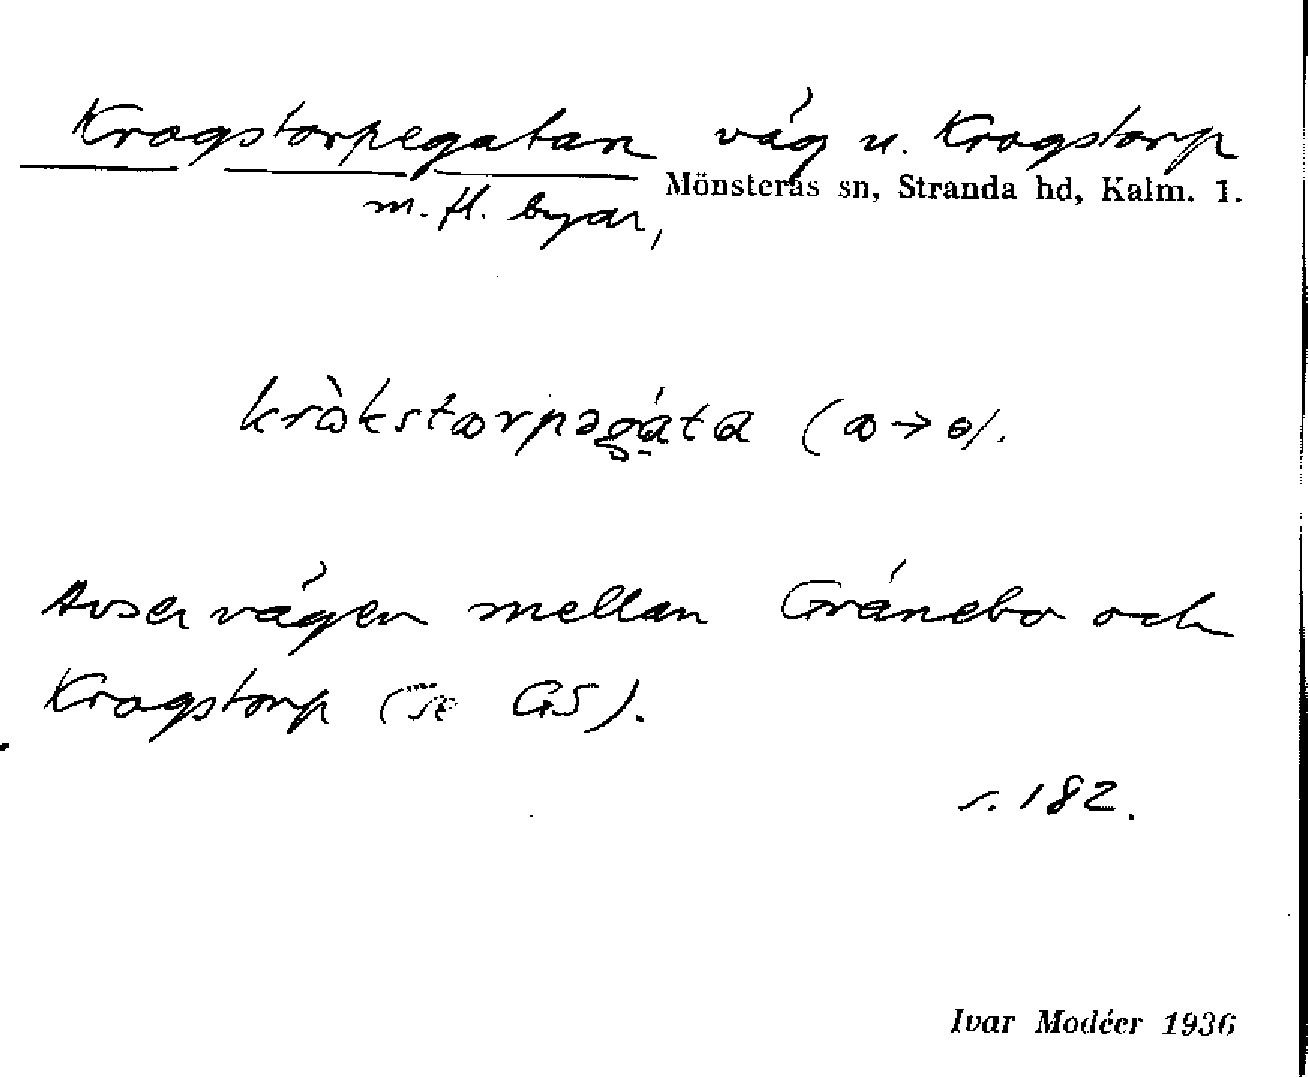 Krogstorpegatan väg u. Krogstorp
Mönsterås sn, Stranda hd, Kalm. l.
m. fl. byar,
kròkstærpəgáta (æ → ө).
Avser vägen mellan Gránebo och
Krogstorp (se GS).
s. 182.
Ivar Modéer 1936